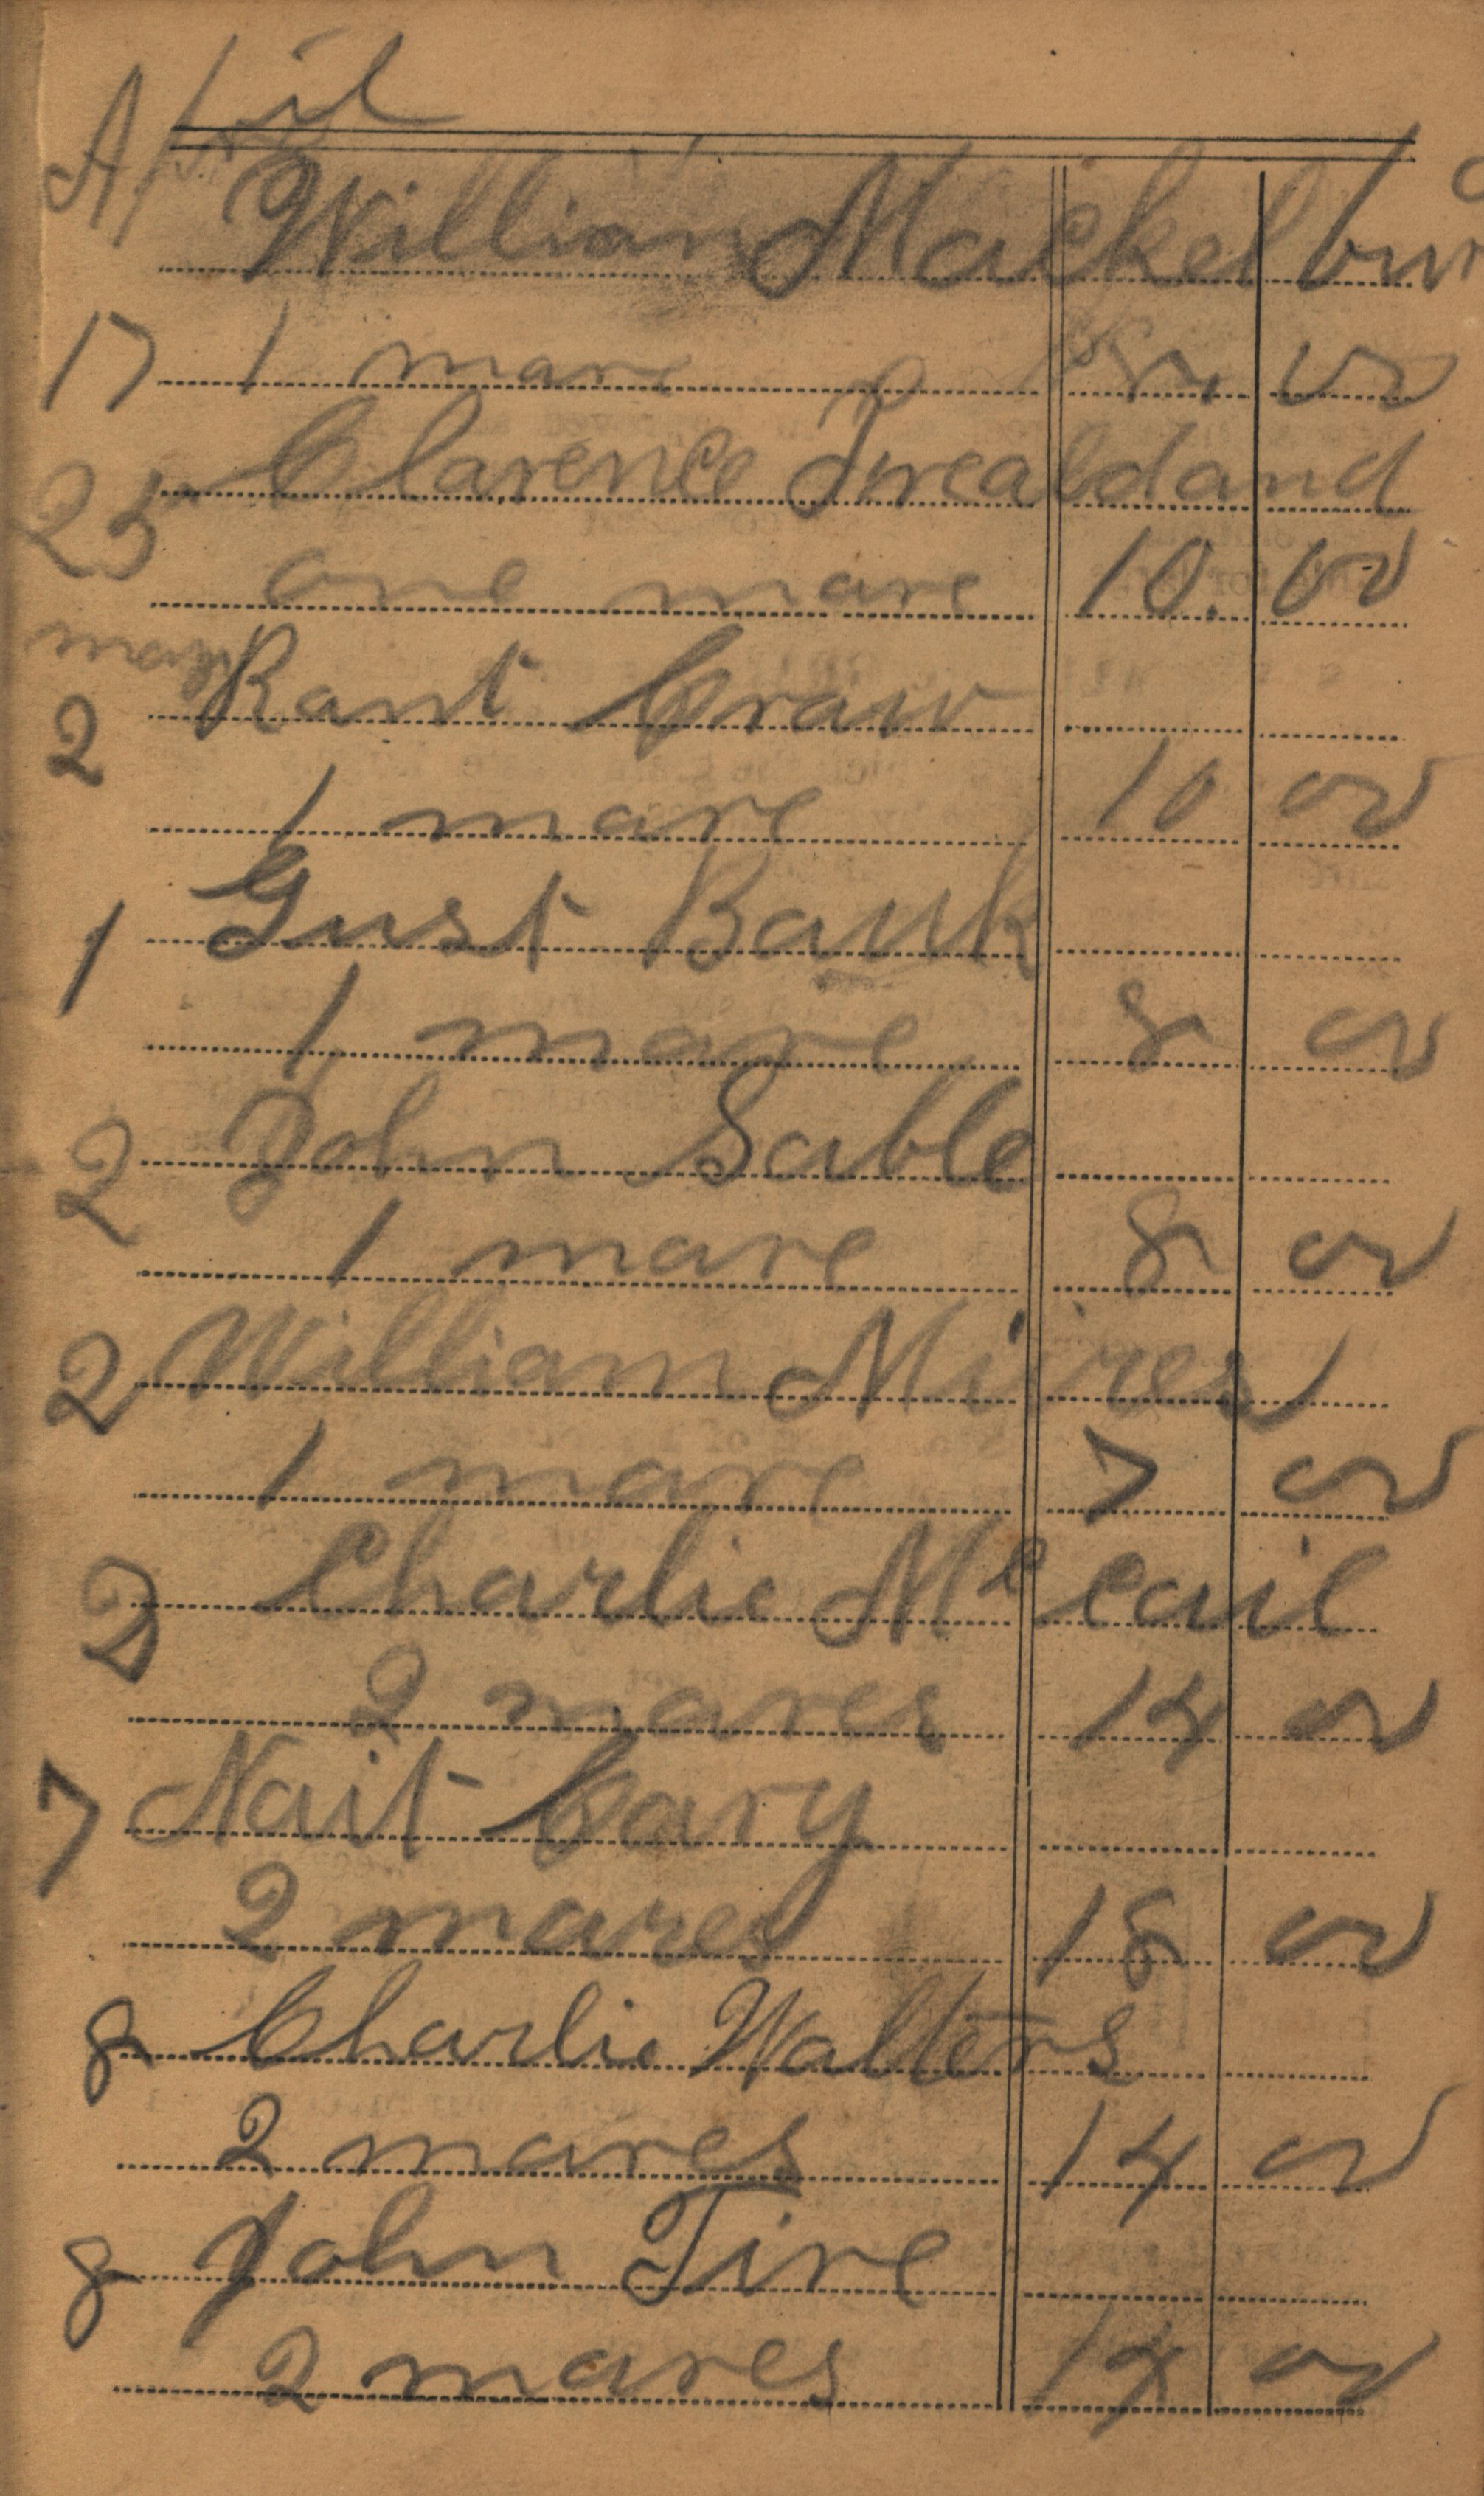 April
William Mackelbur
17 1 mare 8 00
Clarence
25
one mare 10.00
may Rant Craw
2
1 mare 10 00
1 Gust Bank
1 mare 8 00
2 John Sable
1 mare 8 00
2 William Mires
1 mare 7 00
2 Charlie Mc Cail
2 mares 14 00
7 Nait Cary
2 mares 18 00
8 Charlie Walters
2 mares 14 00
8 John Tire
2 mares 14 00